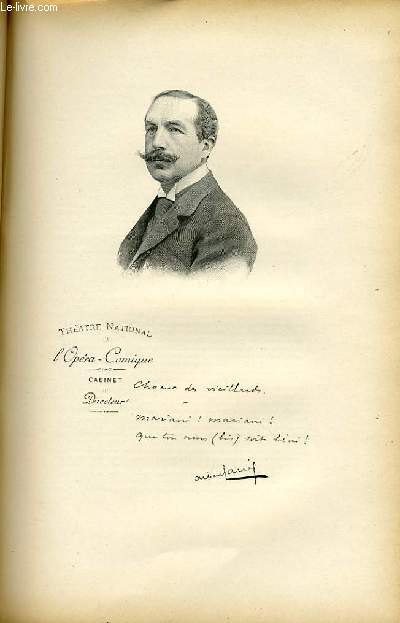 Le-livre.com
THÉÂTRE NATIONAL
DE
l'Opéra-Comique
CABINET
DU
Directeur
Chœur des vieillards.
Mariani ! Mariani !
Que ton nom (bis) soit béni !